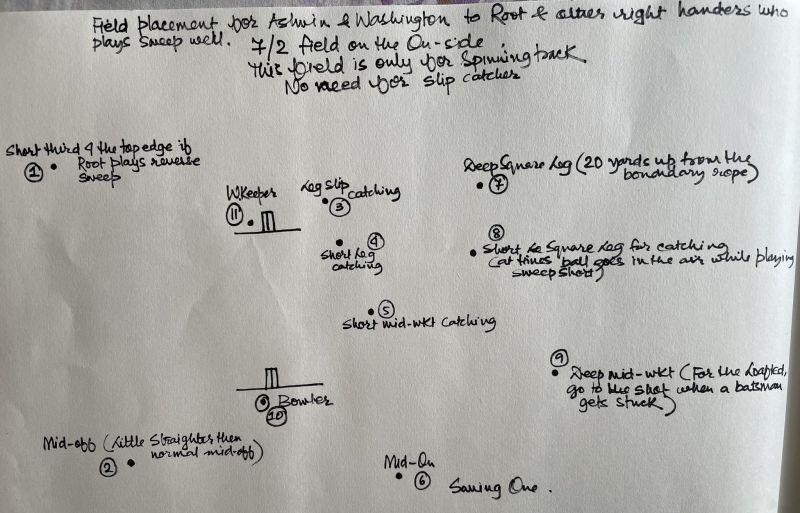 Field placement for Ashwin & Washington to Root & other right handers who
plays sweep well. 7/2 field on the On-side.
This field is only for Spinning track
No need for slip catcher
Short third 4 the top edge if
Root plays reverse
sweep
1
Deep Square Leg (20 yards up from the
boundary rope)
7
W.Keeper
11
Leg slip
catching
3
4
Short Leg
catching
8
Short Le Square Leg for catching
(at times ball goes in the air while playing
sweep short)
5
Short mid-wkt catching
9
Deep mid-wkt (For the Loafted,
go to the shot when a batsman
gets stuck)
Bowler
10
Mid-off (Little Straighter then
normal mid-off)
2
Mid-On
6
Saving One.